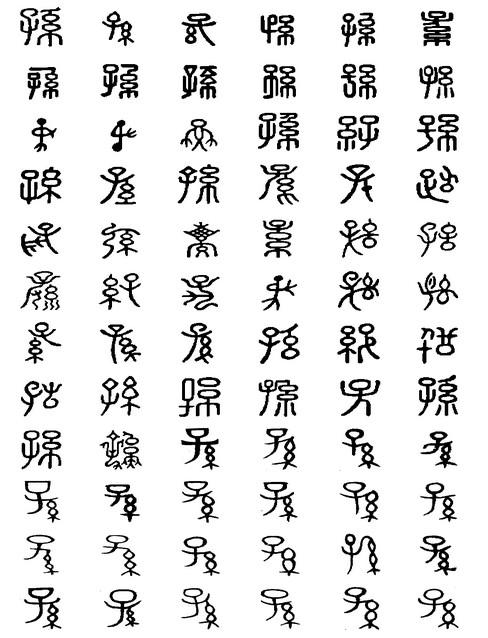 孫 孫 孫 孫 孫 孫
孫 孫 孫 孫 孫 孫
孫 孫 孫 孫 孫 孫
孫 孫 孫 孫 孫 孫
孫 孫 孫 孫 孫 孫
孫 孫 孫 孫 孫 孫
孫 孫 孫 孫 孫 孫
孫 孫 孫 孫 孫 孫
孫 孫 孫 孫 孫 孫
孫 孫 孫 孫 孫 孫
孫 孫 孫 孫 孫 孫
孫 孫 孫 孫 孫 孫